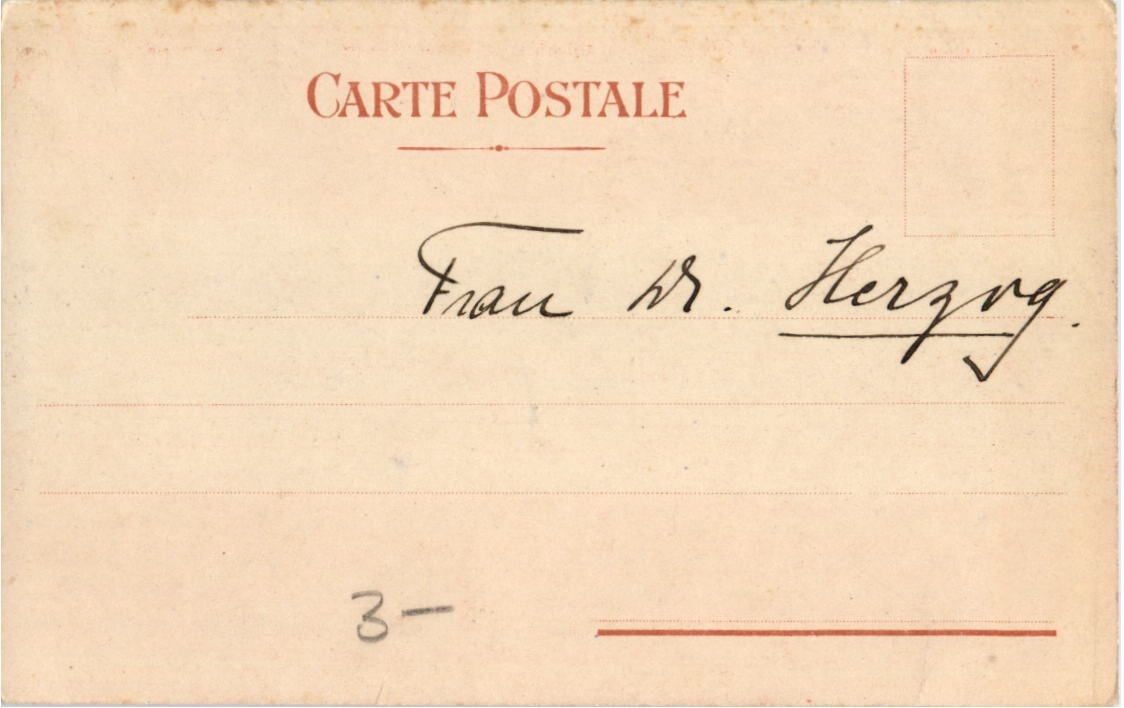 CARTE POSTALE
Frau Dr. Herzog.
3 —